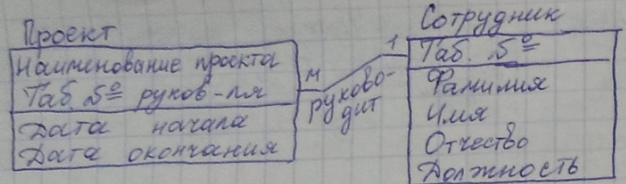 Проект
Наименование проекта
Таб. № руков-ля
Дата начала
Дата окончания
М
руково-
дит
1
Сотрудник
Таб. №
Фамилия
Имя
Отчество
Должность